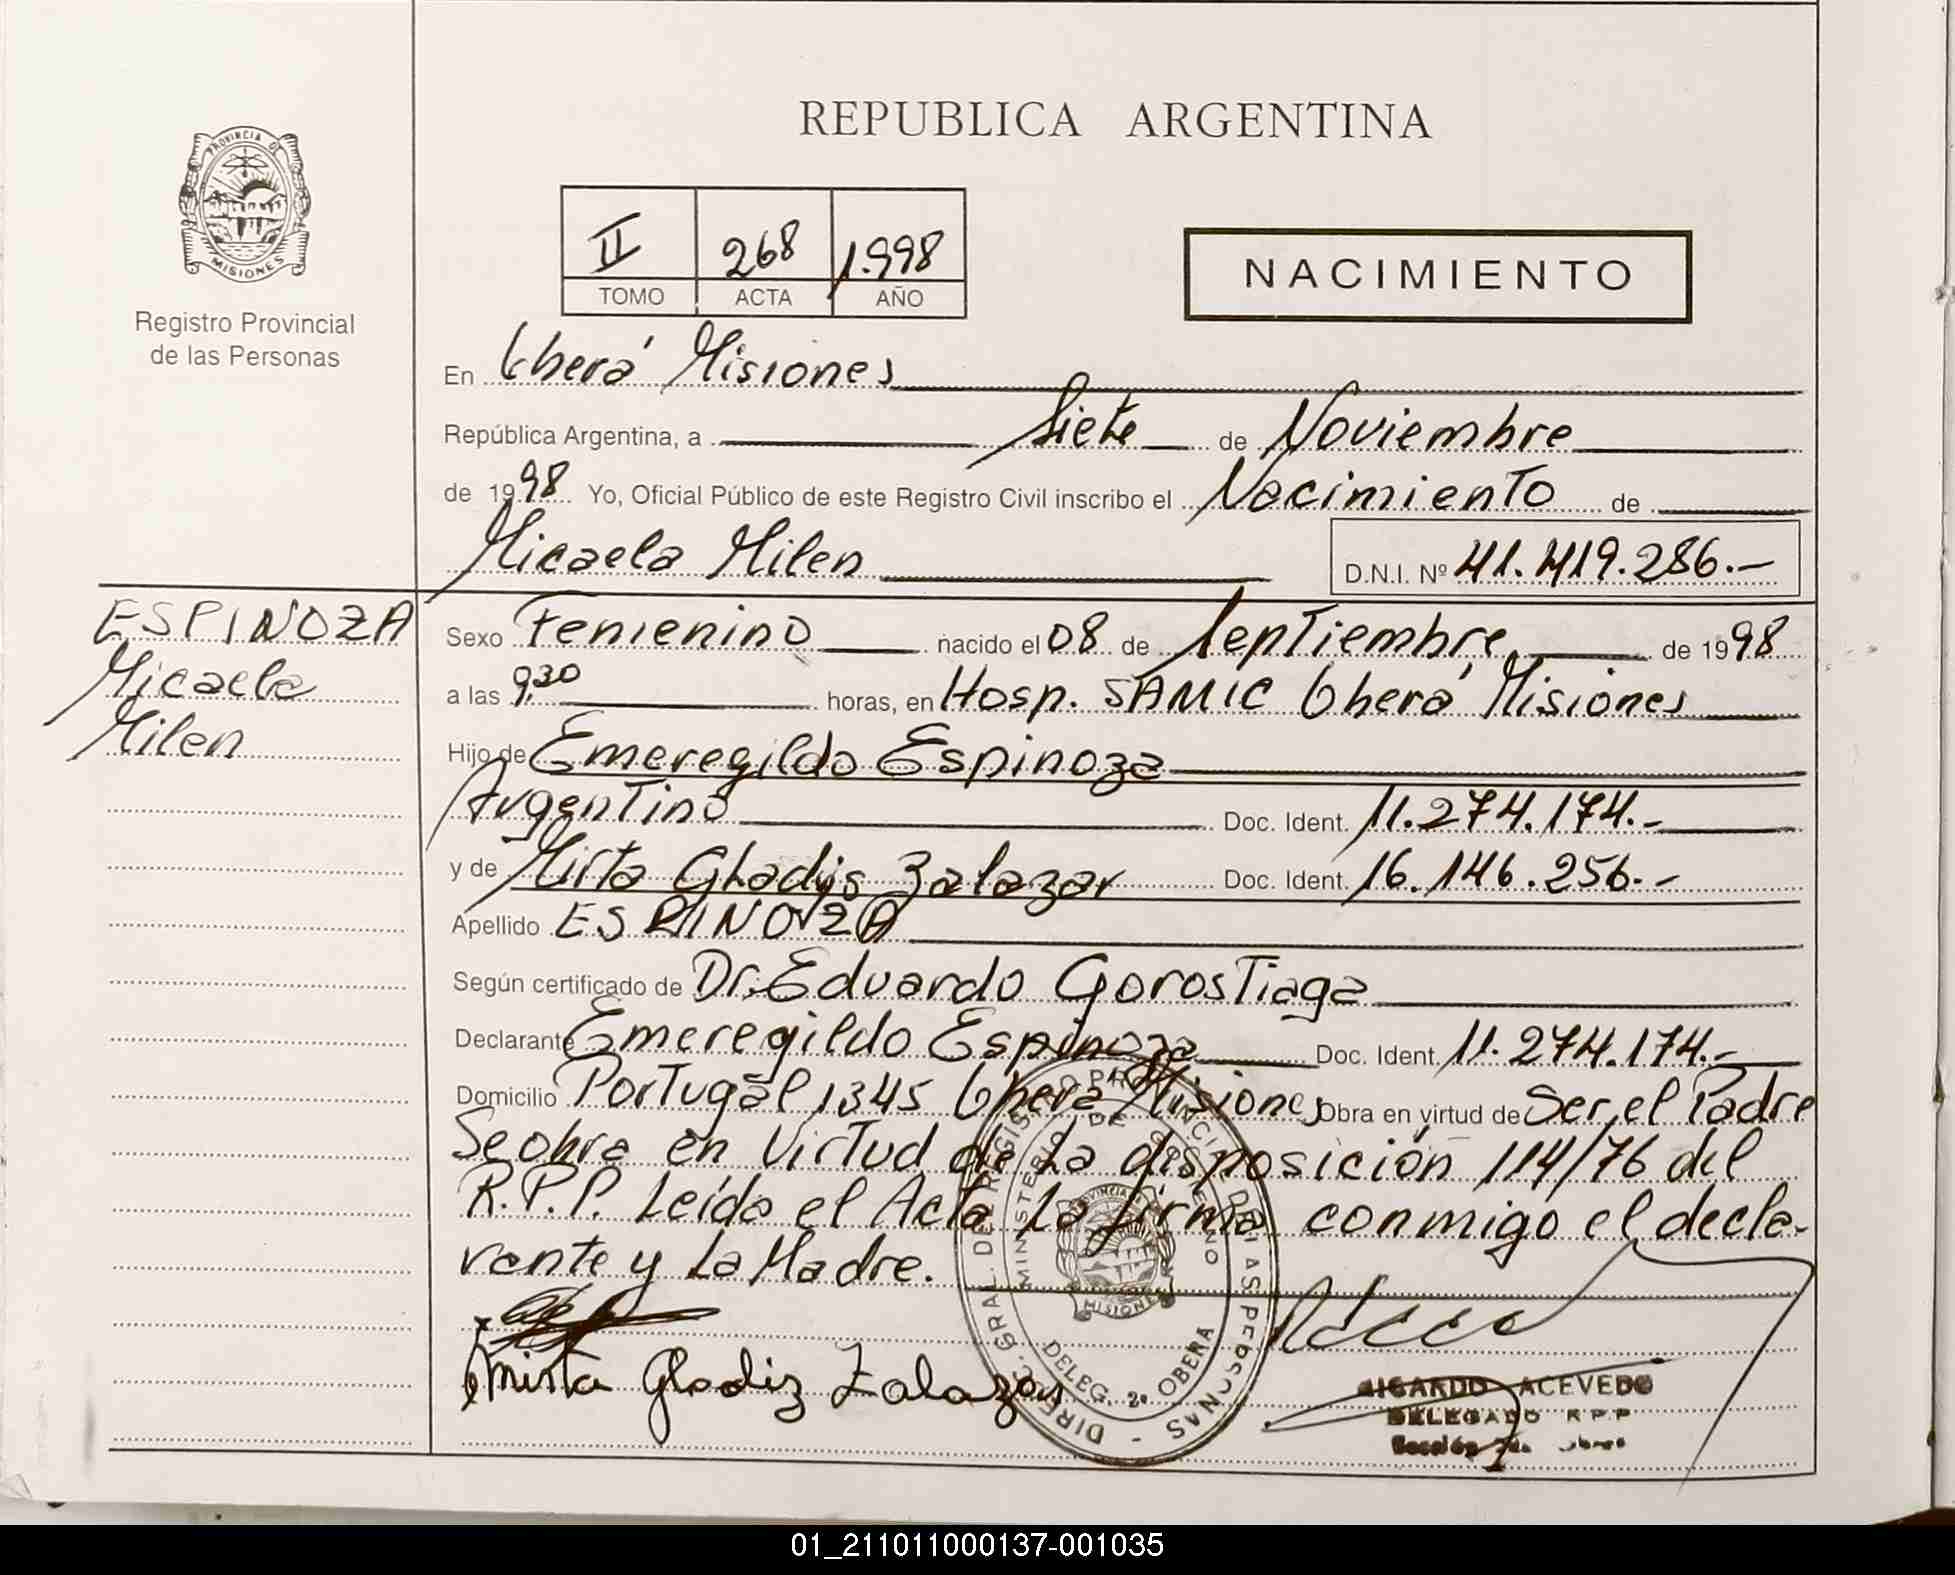 REPUBLICA ARGENTINA
PROVINCIA DE
MISIONES
Registro Provincial
de las Personas
II 268 1.998
TOMO ACTA AÑO
NACIMIENTO
En Oberá Misiones
República Argentina, a Siete de Noviembre
de 1998 Yo, Oficial Público de este Registro Civil inscribo el Nacimiento de
Micaela Milen D.N.I. Nº 41.419.286.-
ESPINOZA
Micaela
Milen
Sexo Femenino nacido el 08 de Septiembre de 1998
a las 9,30 horas, en Hosp. SAMIC Oberá Misiones
Hijo de Emeregildo Espinoza
Argentino Doc. Ident. 11.274.174.-
y de Mirta Gladys Zalazar Doc. Ident. 16.146.256.-
Apellido ESPINOZA
Según certificado de Dr. Eduardo Gorostiaga
Declarante Emeregildo Espinoza Doc. Ident. 11.274.174.-
Domicilio Portugal 1345 Oberá Misiones Obra en virtud de Ser el Padre
Se obra en Virtud de La disposición 114/76 del
R.P.P. Leída el Acta La firma conmigo el decla-
rante y La Madre.
Mirta Gladiz Zalazar
DIREC. GRAL. DE REGISTRO PROVINCIAL DE LAS PERSONAS -
MINISTERIO DE GOBIERNO
PROVINCIA DE
MISIONES
DELEG. 2a OBERA
RICARDO ACEVEDO
DELEGADO R P P
Sección 2da. Oberá
01_211011000137-001035